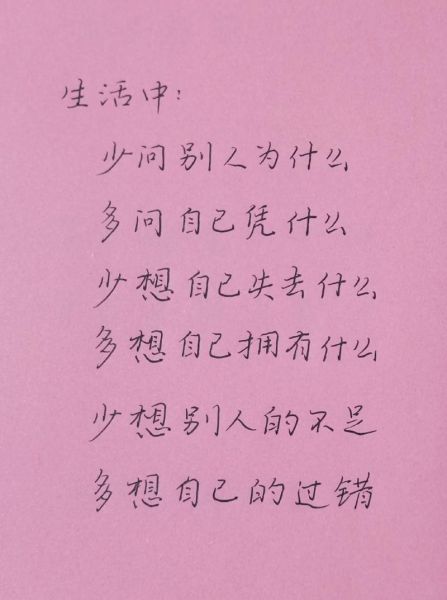 生活中：
少问别人为什么
多问自己凭什么
少想自己失去什么
多想自己拥有什么
少想别人的不足
多想自己的过错